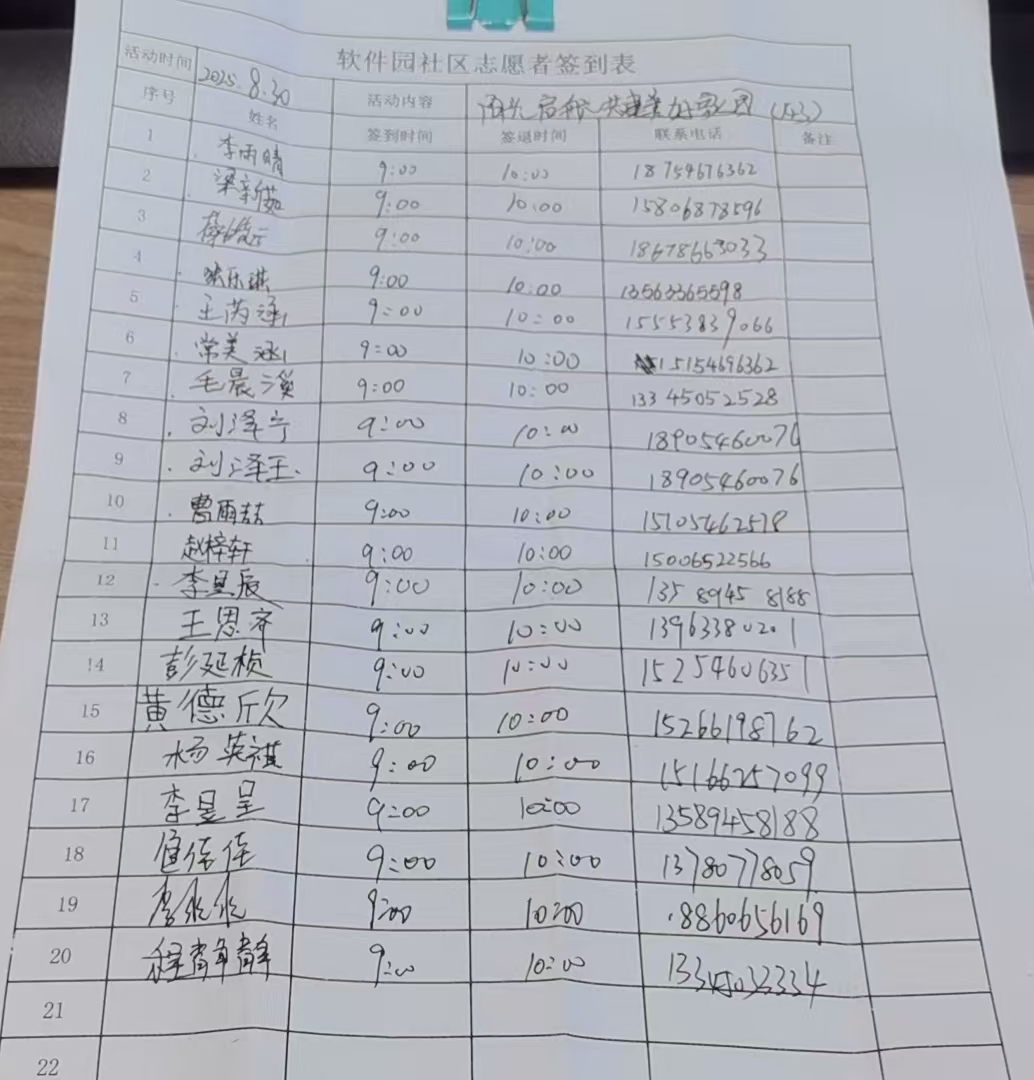 软件园社区志愿者签到表
活动时间 2025.8.30 活动内容 共建美好家园
序号 姓名 签到时间 签退时间 联系电话 备注
1 李雨晴 9:00 10:00 18754676362
2 梁新茹 9:00 10:00 15806878596
3 9:00 10:00 18678663033
4 乐琪 9:00 10:00 13563365598
5 王芮涵 9:00 10:00 15553839066
6 常美涵 9:00 10:00 15154696362
7 毛晨溪 9:00 10:00 13345052528
8 刘泽宁 9:00 10:00 18905460076
9 刘泽玉 9:00 10:00 18905460076
10 曹雨喆 9:00 10:00 15105462518
11 赵梓轩 9:00 10:00 15006522566
12 李昱辰 9:00 10:00 1358945 8188
13 王思齐 9:00 10:00 13963380201
14 彭延桢 9:00 10:00 15254606351
15 黄德欣 9:00 10:00 15266198762
16 杨英祺 9:00 10:00 15166257099
17 李昱呈 9:00 10:00 13589458188
18 佳佳 9:00 10:00 13780778059
19 李 9:00 10:00 18860656169
20 程静静 9:00 10:00
21
22